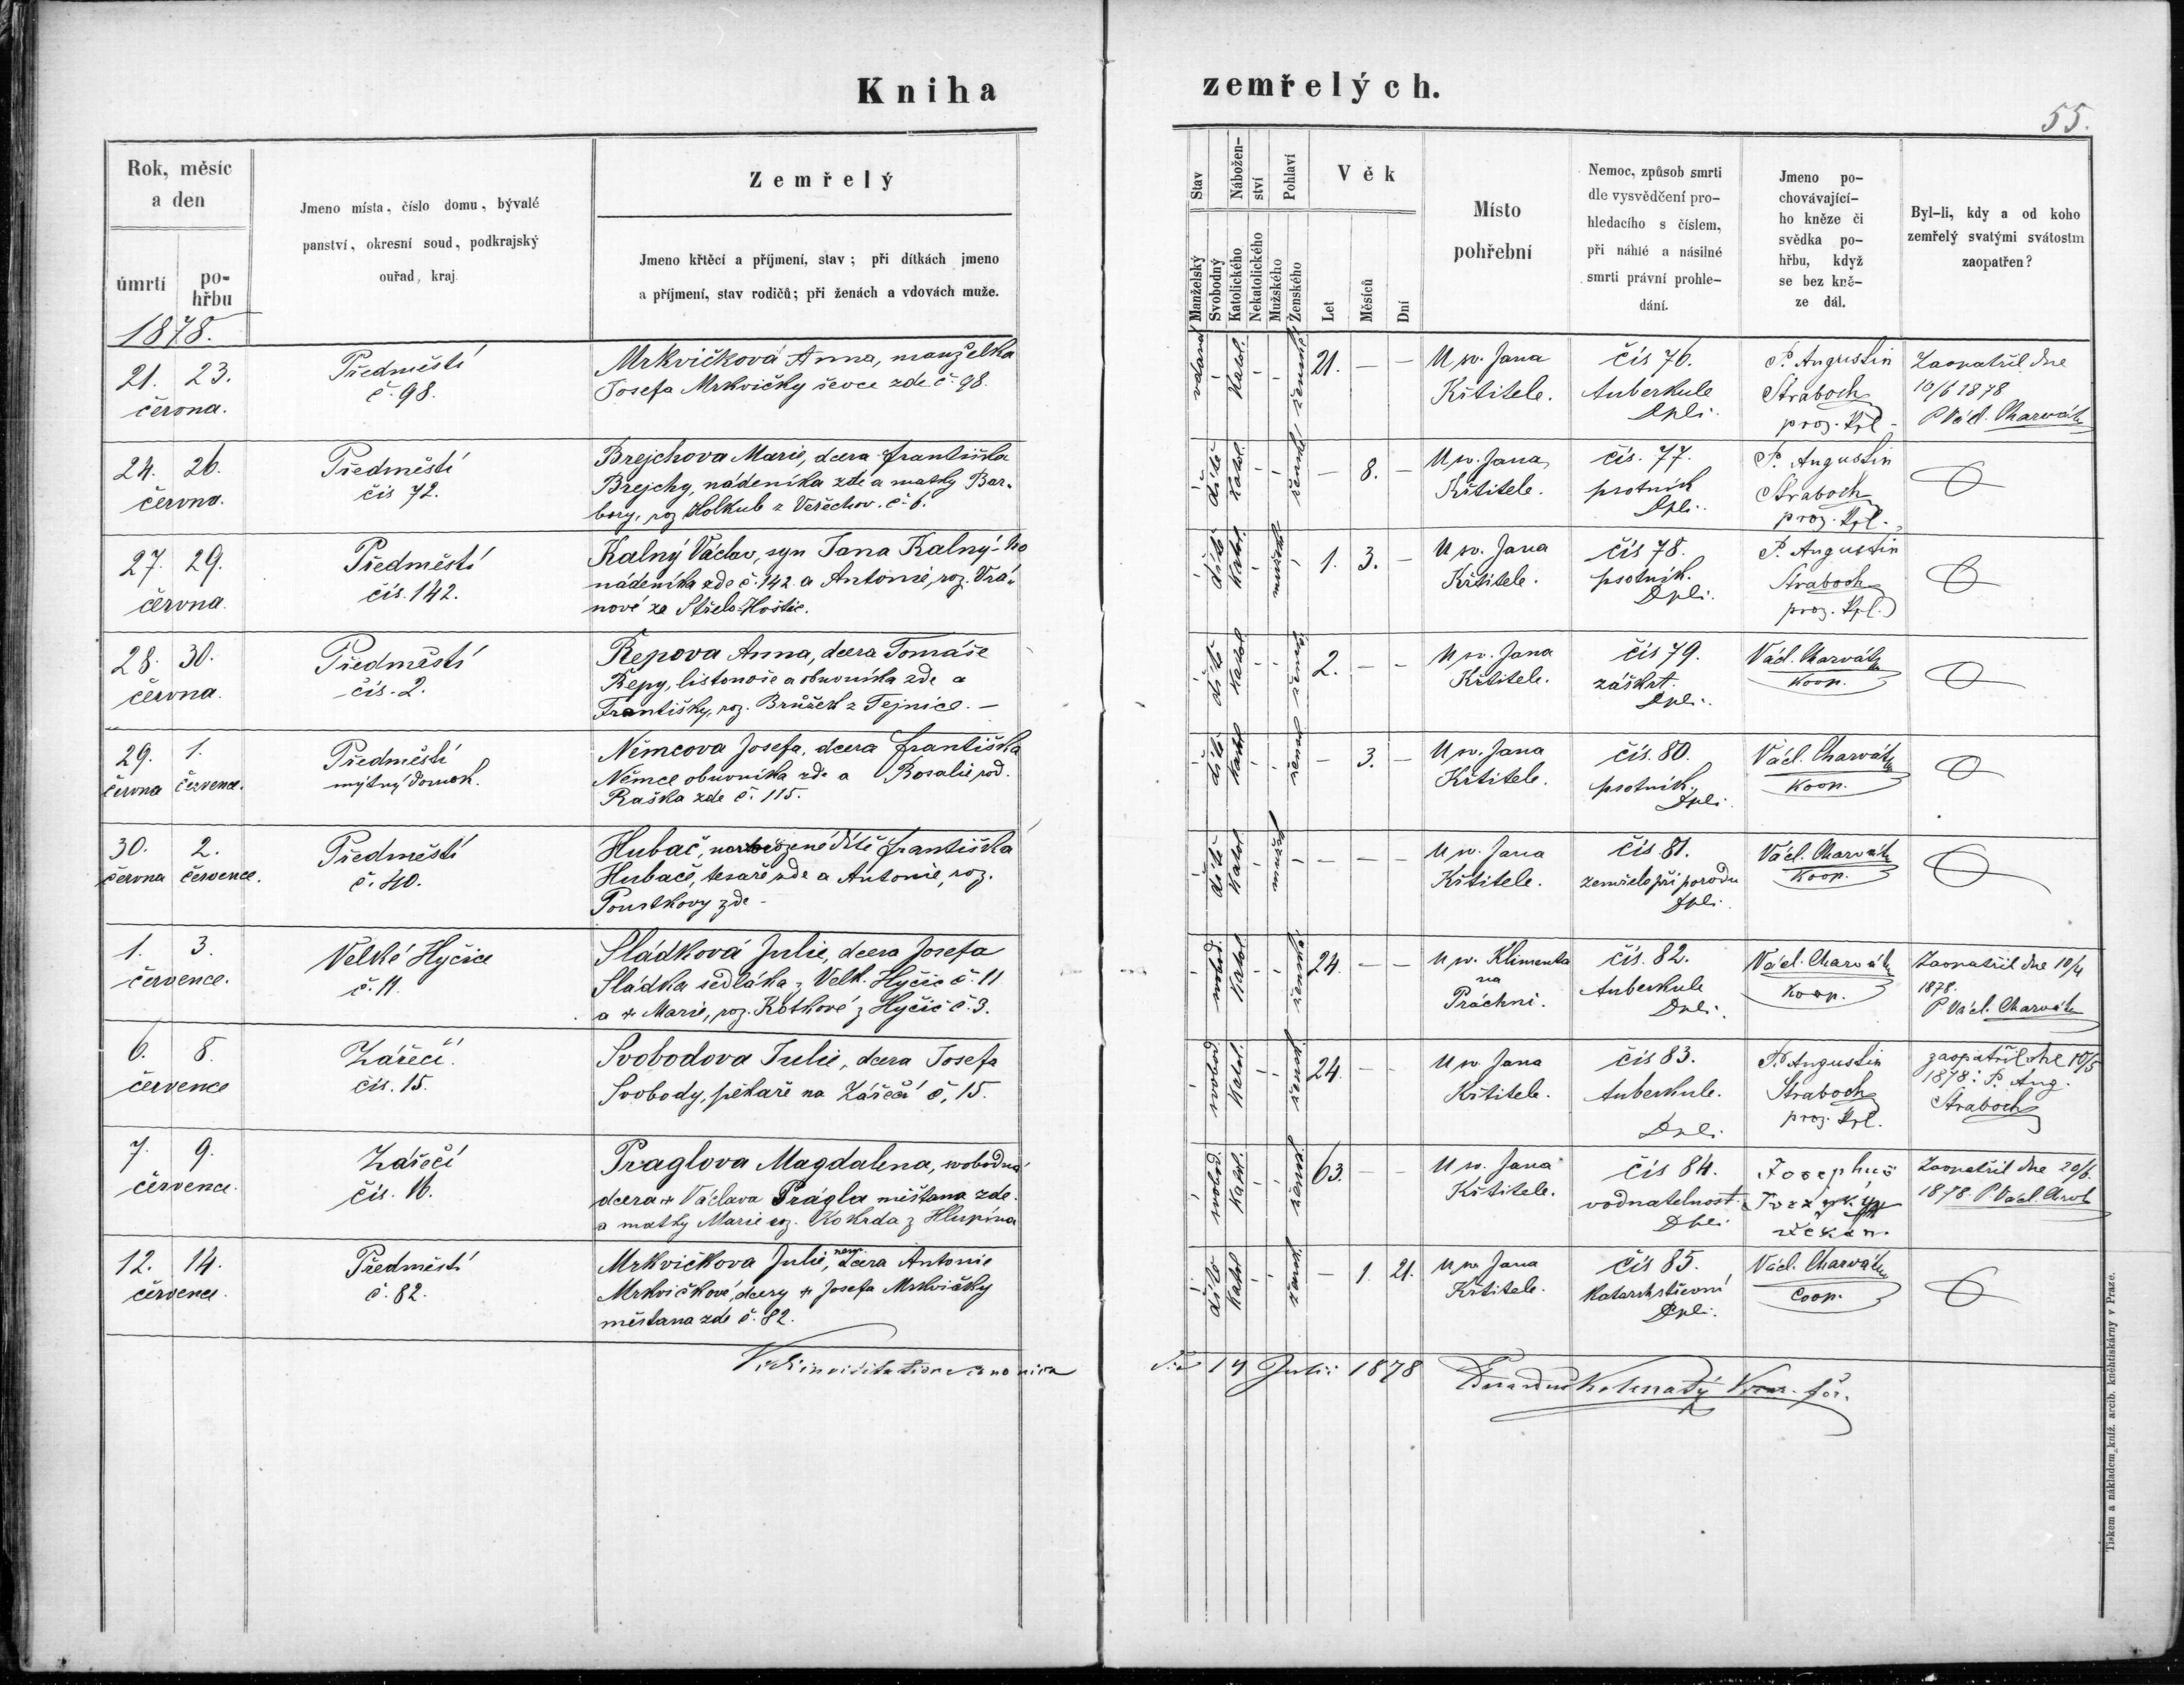 Kniha zemřelých.
55.
Rok, měsíc
a den
úmrtí
po-
hřbu
Jmeno místa, číslo domu, bývalé
panství, okresní soud, podkrajský
ouřad, kraj.
Zemřelý
Jmeno křtěcí a příjmení, stav; při dítkách jmeno
a příjmení, stav rodičů; při ženách a vdovách muže.
Stav
Manželský
Svobodný
Nábožen-
ství
Katolického
Nekatolického
Pohlaví
Mužského
Ženského
Věk
Let
Měsíců
Dní
Místo
pohřební
Nemoc, způsob smrti
dle vysvědčení pro-
hledacího s číslem,
při náhlé a násilné
smrti právní prohle-
dání.
Jmeno po-
chovávající-
ho kněze či
svědka po-
hřbu, když
se bez kně-
ze dál.
Byl-li, kdy a od koho
zemřelý svatými svátostm
zaopatřen?
1878.
21. 23.
června.
Předměstí
č. 98.
Mrkvičková Anna, manželka
Josefa Mrkvičky ševce zde č. 98.
vdaná - Katol. - - ženské 21. - -
U sv. Jana
Křtitele.
čís 76.
tuberkule
Dpli.
P. Augustin
Straboch
proz. Kpl.
Zaopatřil dne
10/6 1878
P Václ. Charvát
24. 26.
června.
Předměstí
čís 72.
Brejchova Marie, dcera Františka
Brejchy, nádeníka zde a matky Bar-
bory, roz Holkub z Veřechov. č. 6.
- dítě Katol. - - ženské - 8. -
U sv. Jana
Křtitele.
čís. 77.
psotník
Dpli.
P. Augustin
Straboch
proz. Kpl.
27. 29.
června.
Předměstí
čís. 142.
Kalný Václav, syn Jana Kalný-ho
nádeníka zde č. 142. a Antonie, roz. Vrá-
nové ze Střelo-Hoštic.
- dítě Katol. - mužské - 1. 3. -
U sv. Jana
Křtitele.
čís 78.
psotník.
Dpli.
P. Augustin
Straboch
proz. Kpl.
28. 30.
června.
Předměstí
čís. 2.
Řepova Anna, dcera Tomáše
Řepy, listonoše a obuvníka zde a
Františky, roz. Brůžek z Tejnice. -
- dítě Katol. - - žensk. 2. - -
U sv. Jana
Křtitele.
čís 79.
záškrt.
Dpli.
Václ. Charvát
Koop.
29. 1.
června července.
Předměstí
mýtný domek.
Němcova Josefa, dcera Františka
Němce obuvníka zde a Rosalie rod.
Raška zde č. 115.
- dítě Katol - - žensk - 3. -
U sv. Jana
Křtitele.
čís. 80.
psotník.
Dpli.
Václ. Charvát
Koop.
30. 2.
června července.
Předměstí
č. 40.
Hubač, dítě Františka
Hubače, tesaře zde a Antonie, roz.
Poustkovy zde -
- dítě Katol. - mužsk - - - -
U sv. Jana
Křtitele.
čís 81.
zemřelo při porodu
Dpli.
Václ. Charvát
Koop.
1. 3.
července.
Velké Hyčice
č. 11.
Sládková Julie, dcera Josefa
Sládka sedláka z Velk. Hyčic č. 11
a + Marie, roz. Kotkové z Hyčic č. 3.
- svobod. Katol - - ženské 24. - -
U sv. Klimenta
na
Práchni.
čís. 82.
tuberkule
Dpli.
Václ. Charvát
Koop.
Zaopatřil dne 10/4
1878.
P Václ. Charvát
6. 8.
července
Zářečí.
čís. 15.
Svobodova Julie, dcera Josefa
Svobody, pekaře na Zářečí č. 15.
- svobod Katol. - - žensk. 24. - -
U sv. Jana
Křtitele.
čís 83.
tuberkule.
Dpli.
P. Augustin
Straboch
proz. Kpl.
zaopatřil dne 10/5
1878: P. Aug.
Straboch
7. 9.
července.
Zářečí
čís. 16.
Praglova Magdalena, svobodná
dcera + Václava Prágla měšťana zde
a matky Marie roz. Kokrda z Hlupína
- svobod. Katol. - - žensk. 63. - -
U sv. Jana
Křtitele.
čís 84.
vodnatelnost.
Dpli
Josephus
děkan.
Zaopatřil dne 20/6.
1878. P. Václ. Charv
12. 14.
července.
Předměstí
č. 82.
Mrkvičkova Julie, nem. dcera Antonie
Mrkvičkové, dcery + Josefa Mrkvičky
měšťana zde č. 82.
- dítě Katol - - žensk. - 1. 21.
U sv. Jana
Křtitele.
čís 85.
Katarrh střevní
Dpli.
Václ. Charvát
Coop.
Vidi in visitatione canonica die 14 Julii 1878
Tiskem a nákladem kníž. arcib. kněhtiskárny v Praze.